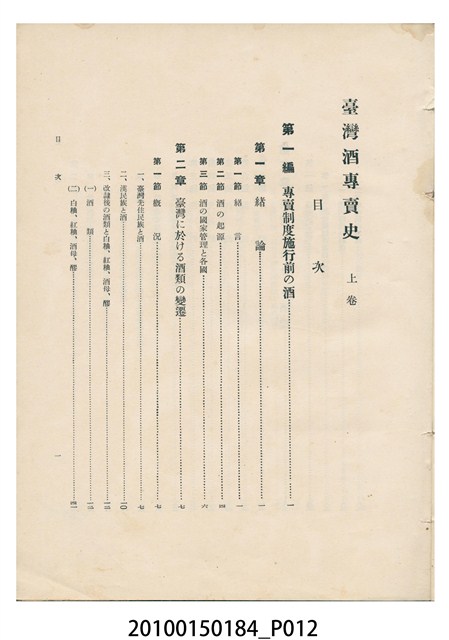 臺灣酒專賣史 上卷
目次
第一編 專賣制度施行前の酒 一
第一章 緒論 一
第一節 緒言 一
第二節 酒の起源 四
第三節 酒の國家管理と各國 六
第二章 臺灣に於ける酒類の變遷 七
第一節 概況 七
一、臺灣先住民族と酒 七
二、漢民族と酒 一〇
三、改隷後の酒類と白麯、紅麯、酒母、醪 一三
(一) 酒類 一三
(二) 白麯、紅麯、酒母、醪 四一
目次 一
20100150184_P012